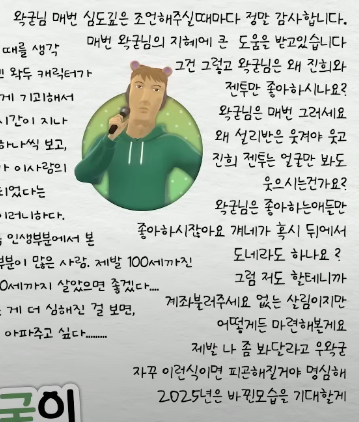 왁굳님 매번 심도깊은 조언해주실때마다 정말 감사합니다.
매번 왁굳님의 지혜에 큰 도움을 받고있습니다
그건 그렇고 왁굳님은 왜 진희와
젠투만 좋아하시나요?
왁굳님은 매번 그러세요
왜 설리반은 웃겨야 웃고
진희 젠투는 얼굴만 봐도
웃으시는건가요?
왁굳님은 좋아하는애들만
좋아하시잖아요 걔네가 혹시 뒤에서
도네라도 하나요?
그럼 저도 할테니까
계좌불러주세요 없는 살림이지만
어떻게든 마련해볼게요
제발 나 좀 봐달라고 우왁굳
자꾸 이런식이면 피곤해질거야 명심해
2025년은 바뀐모습을 기대할게
때를 생각
왁두 캐릭터가
게 기괴해서
시간이 지나
하나씩 보고,
가 이사람의
되었다는
이러니하다.
인생부분에서 본
부분이 많은 사람. 제발 100세까진
0세까지 살았으면 좋겠다....
게 더 심해진 걸 보면,
아파주고 싶다.........
굳이